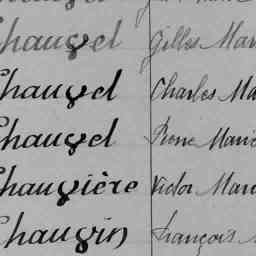 Chauvel Gilles Mari
Chauvel Charles Ma
Chauvel Pierre Marie
Chauvière Victor Mari
Chauvin François